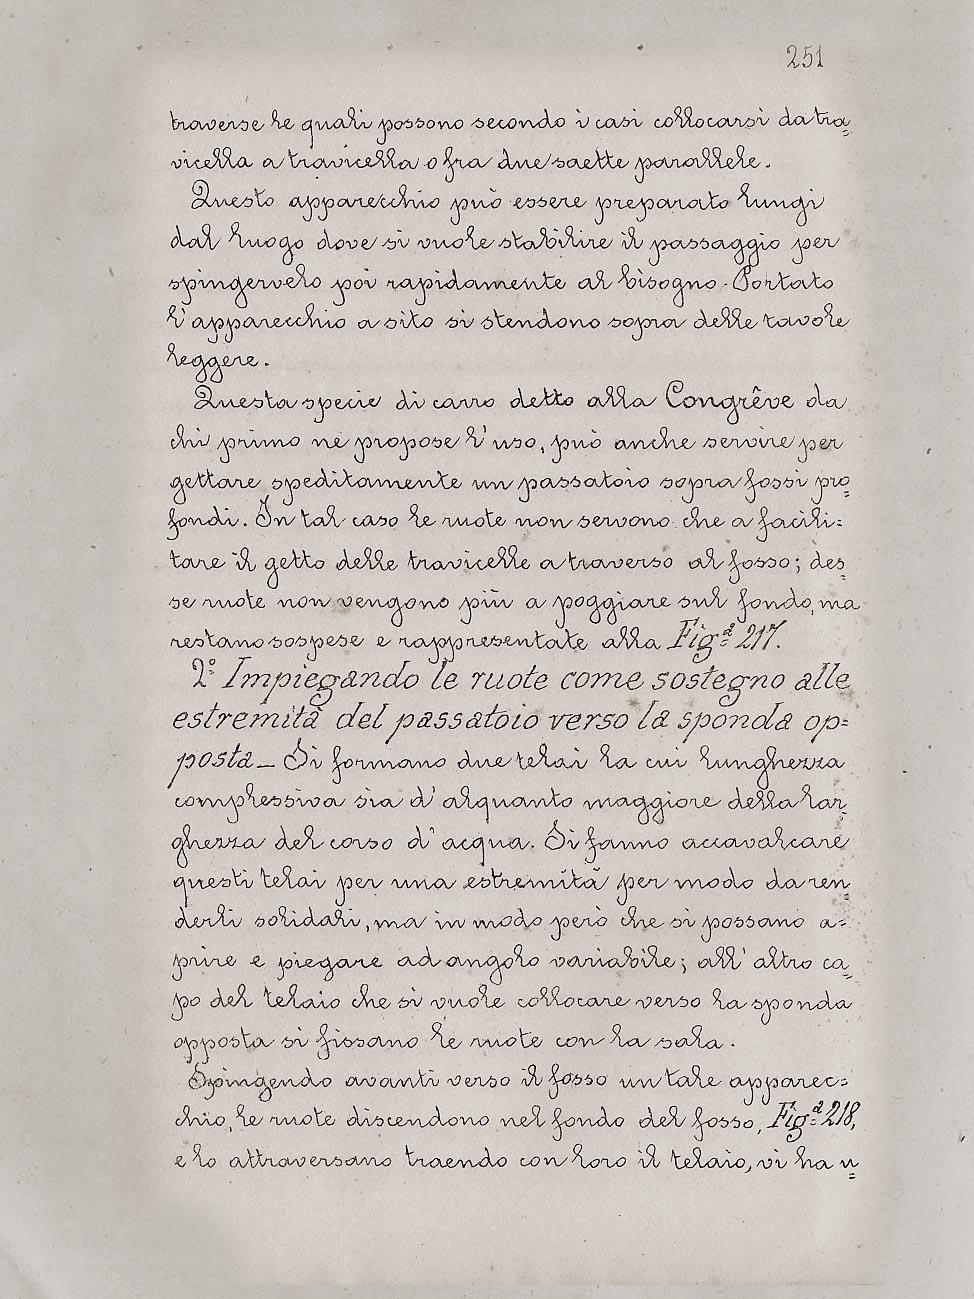 251
traverse le quali possono secondo i casi collocarsi da tra=
vicella a travicella o fra due saette parallele.
Questo apparecchio può essere preparato lungi
dal luogo dove si vuole stabilire il passaggio per
spingervelo poi rapidamente al bisogno. Portato
l'apparecchio a sito si stendono sopra delle tavole
leggere.
Questa specie di carro detto alla Congrêve da
chi primo ne propose l'uso, può anche servire per
gettare speditamente un passatoio sopra fossi pro=
fondi. In tal caso le ruote non servono che a facili=
tare il getto delle travicelle a traverso al fosso; des=
se ruote non vengono più a poggiare sul fondo, ma
restano sospese e rappresentate alla Fig.ª 217.
2.° Impiegando le ruote come sostegno alle
estremità del passatoio verso la sponda op=
posta_ Si formano due telai la cui lunghezza
complessiva sia d'alquanto maggiore della lar=
ghezza del corso d'acqua. Si fanno accavalcare
questi telai per una estremità per modo da ren=
derli solidali, ma in modo però che si possano a=
prire e piegare ad angolo variabile; all'altro ca=
po del telaio che si vuole collocare verso la sponda
opposta si fissano le ruote con la sala.
Spingendo avanti verso il fosso un tale apparec=
chio, le ruote discendono nel fondo del fosso, Fig.ª 218,
e lo attraversano traendo con loro il telaio, vi ha u=